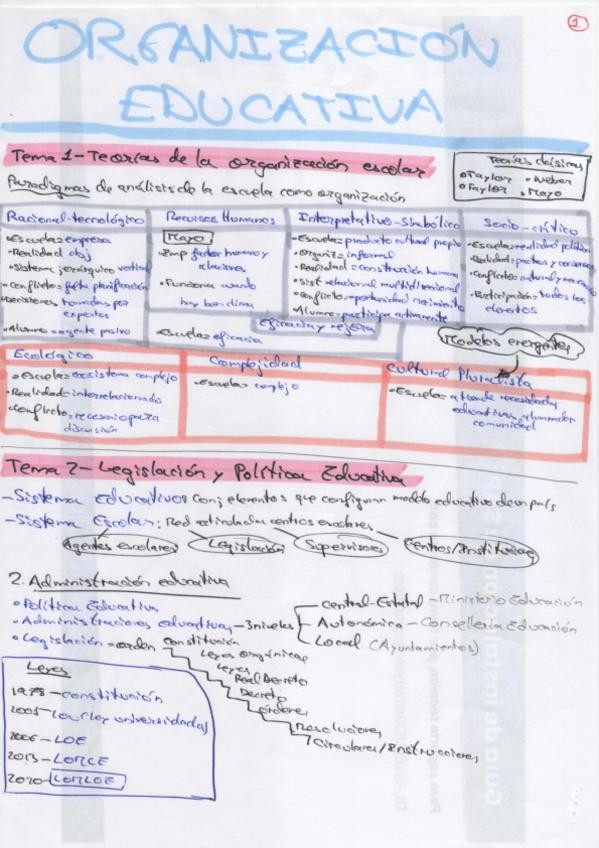 1
ORGANIZACIÓN
EDUCATIVA
Tema 1-Teorías de la organización escolar
Teorías clásicas
Taylor • Weber
Faylor • Mayo
Paradigmas de análisis de la escuela como organización
Racional-tecnológico
•Escuela=empresa
-Realidad obj
•Sistema jerárquico vertical
•Conflicto=falta planificación
•Decisiones tomadas por
expertos
•Alumno=agente pasivo
Recursos Humanos
Mayo
•Imp factor humano y
relaciones
•Funciona cuando
hay buen clima
•Escuela=eficacia
Eficacia y mejora
Interpretativo-Simbólico
•Escuela=producto cultural propio
•Organiz=informal
•Realidad=construcción humana
•Sist relacional multidireccional
•Conflicto=oportunidad crecimiento
•Alumno=participa activamente
Socio-crítico
•Escuela=realidad política
•Realidad=pactos y consensos
•Conflicto=natural y necesario
•Participación=todos los
Modelos emergentes
Ecológico
•Escuela=ecosistema complejo
•Realidad=interrelacionado
•Conflicto=necesario para
discusión
Complejidad
•Escuela=complejo
Cultural Pluralista
•Escuela=atiende necesidades
educativas, alumnado y
comunidad
Tema 2-Legislación y Política Educativa
-Sistema Educativo: Conj elementos que configuran modelo educativo de un país
-Sistema Escolar: Red articulada centros escolares
Agentes escolares Legislación Supervisores Centros/Instituciones
2. Administración educativa
•Política Educativa
•Administraciones educativas-3 niveles
Central-Estatal-Ministerio Educación
Autonómica-Consellería Educación
Local (Ayuntamientos)
•Legislación=orden Constitución
Leyes Orgánicas
Leyes
Real Decreto
Decreto
Órdenes
Resoluciones
Circulares/Instrucciones
Leyes
1978-Constitución
2001-LOU (Ley universidades)
2006-LOE
2013-LOMCE
2020-LOMLOE